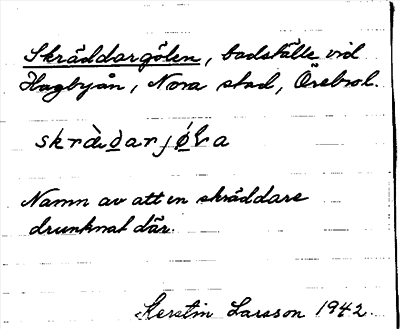 Skräddargölen, badställe vid
Hagbyån, Nora stad, Örebro l.
skrä̀darjø̀La
Namn av att en skräddare
drunknat där.
Kerstin Larsson 1942.